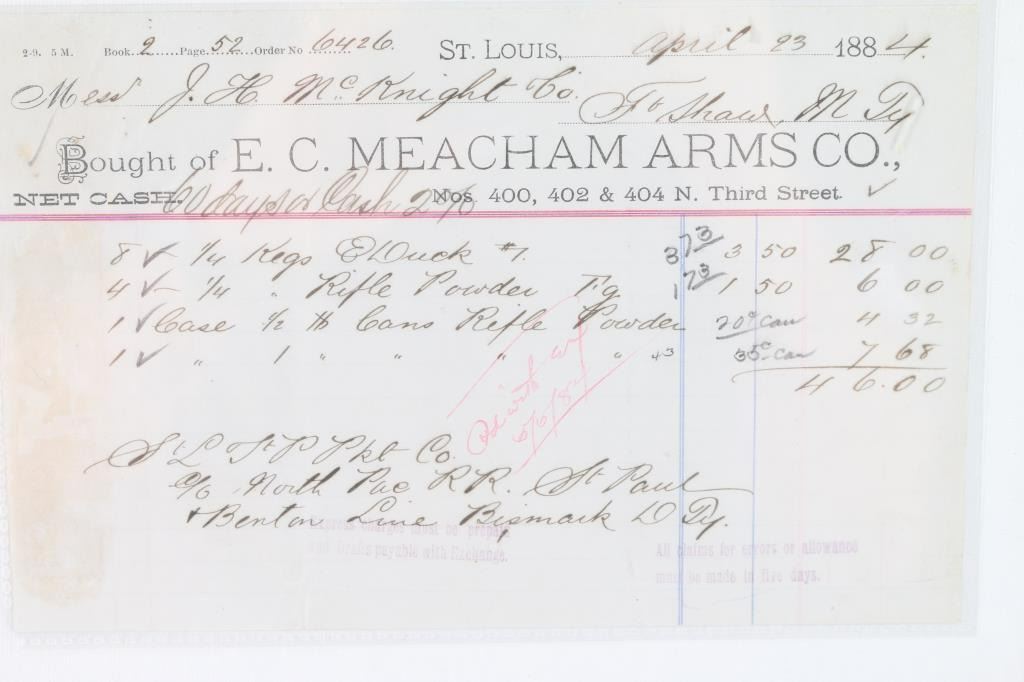 2-9. 5 M. Book 2 Page 52 Order No 6426. St. Louis, April 23 1884.
Mess J. H. McKnight Co. Ft Shaw, M Ty
Bought of E. C. MEACHAM ARMS CO.,
NET CASH. 60 days or Cash 2% Nos. 400, 402 & 404 N. Third Street.
8 ✓ 1/4 Kegs E Duck #1. 3 73 3 50 28 00
4 ✓ 1/4 " Rifle Powder Fg 1 73 1 50 6 00
1 ✓ Case 1/2 lb Cans Rifle Powder 20¢ can 4 32
1 ✓ " 1 " " " " 43 35¢ can 7 68
46.00
6/6/84
St L & St P Pkt Co.
c/o North Pac RR. St Paul
+ Benton Line Bismark D Ty.
Express charges must be prepaid
and Drafts payable with Exchange.
All claims for errors or allowance
must be made in five days.